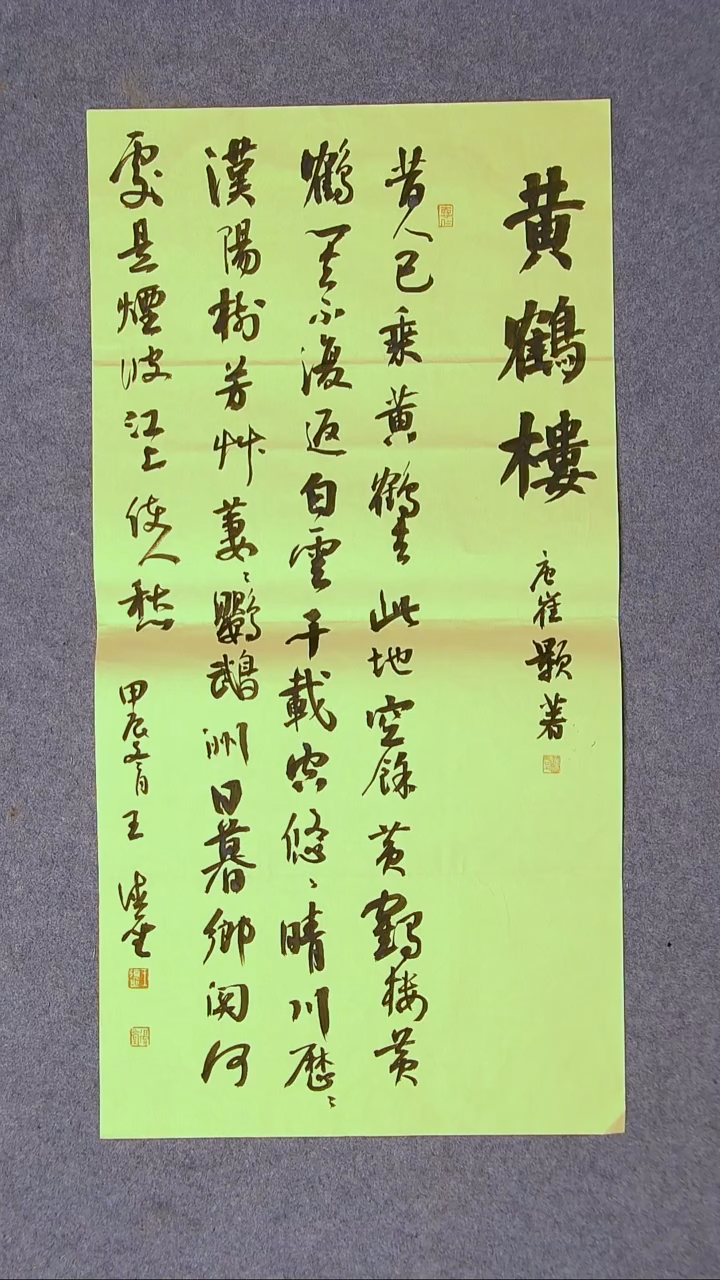 黄鶴樓
唐崔顥著
昔人已乘黄鶴去此地空餘黄鶴楼黄
鶴一去不復返白雲千載空悠〻晴川歷〻
漢陽樹芳艸萋〻鸚鵡洲日暮鄉関何
處是煙波江上使人愁
甲辰 月王